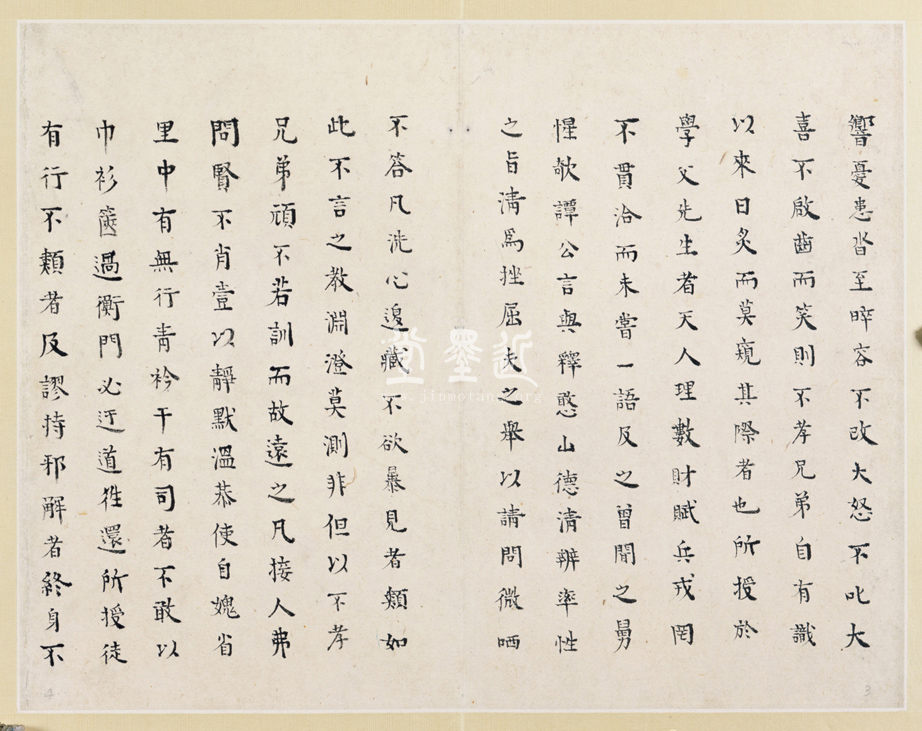 響憂患沓至睟容不改大怒不叱大
喜不啟齒而笑則不孝兄弟自有識
以來日炙而莫窺其際者也所授於
學父先生者天人理數財賦兵戎罔
不貫洽而未嘗一語及之曾聞之舅
惺欹譚公言與釋憨山德清辨率性
之旨清爲挫屈夫之舉以請問微哂
不答凡洗心退藏不欲暴見者類如
此不言之教淵澄莫測非但以不孝
兄弟頑不若訓而故遠之凡接人弗
問賢不肖壹以靜默溫恭使自媿省
里中有無行青衿干有司者不敢以
巾衫篋過衡門必迂道往還所授徒
有行不類者及謬持邪解者終身不
近墨堂
www.jinmotang.org
3
4